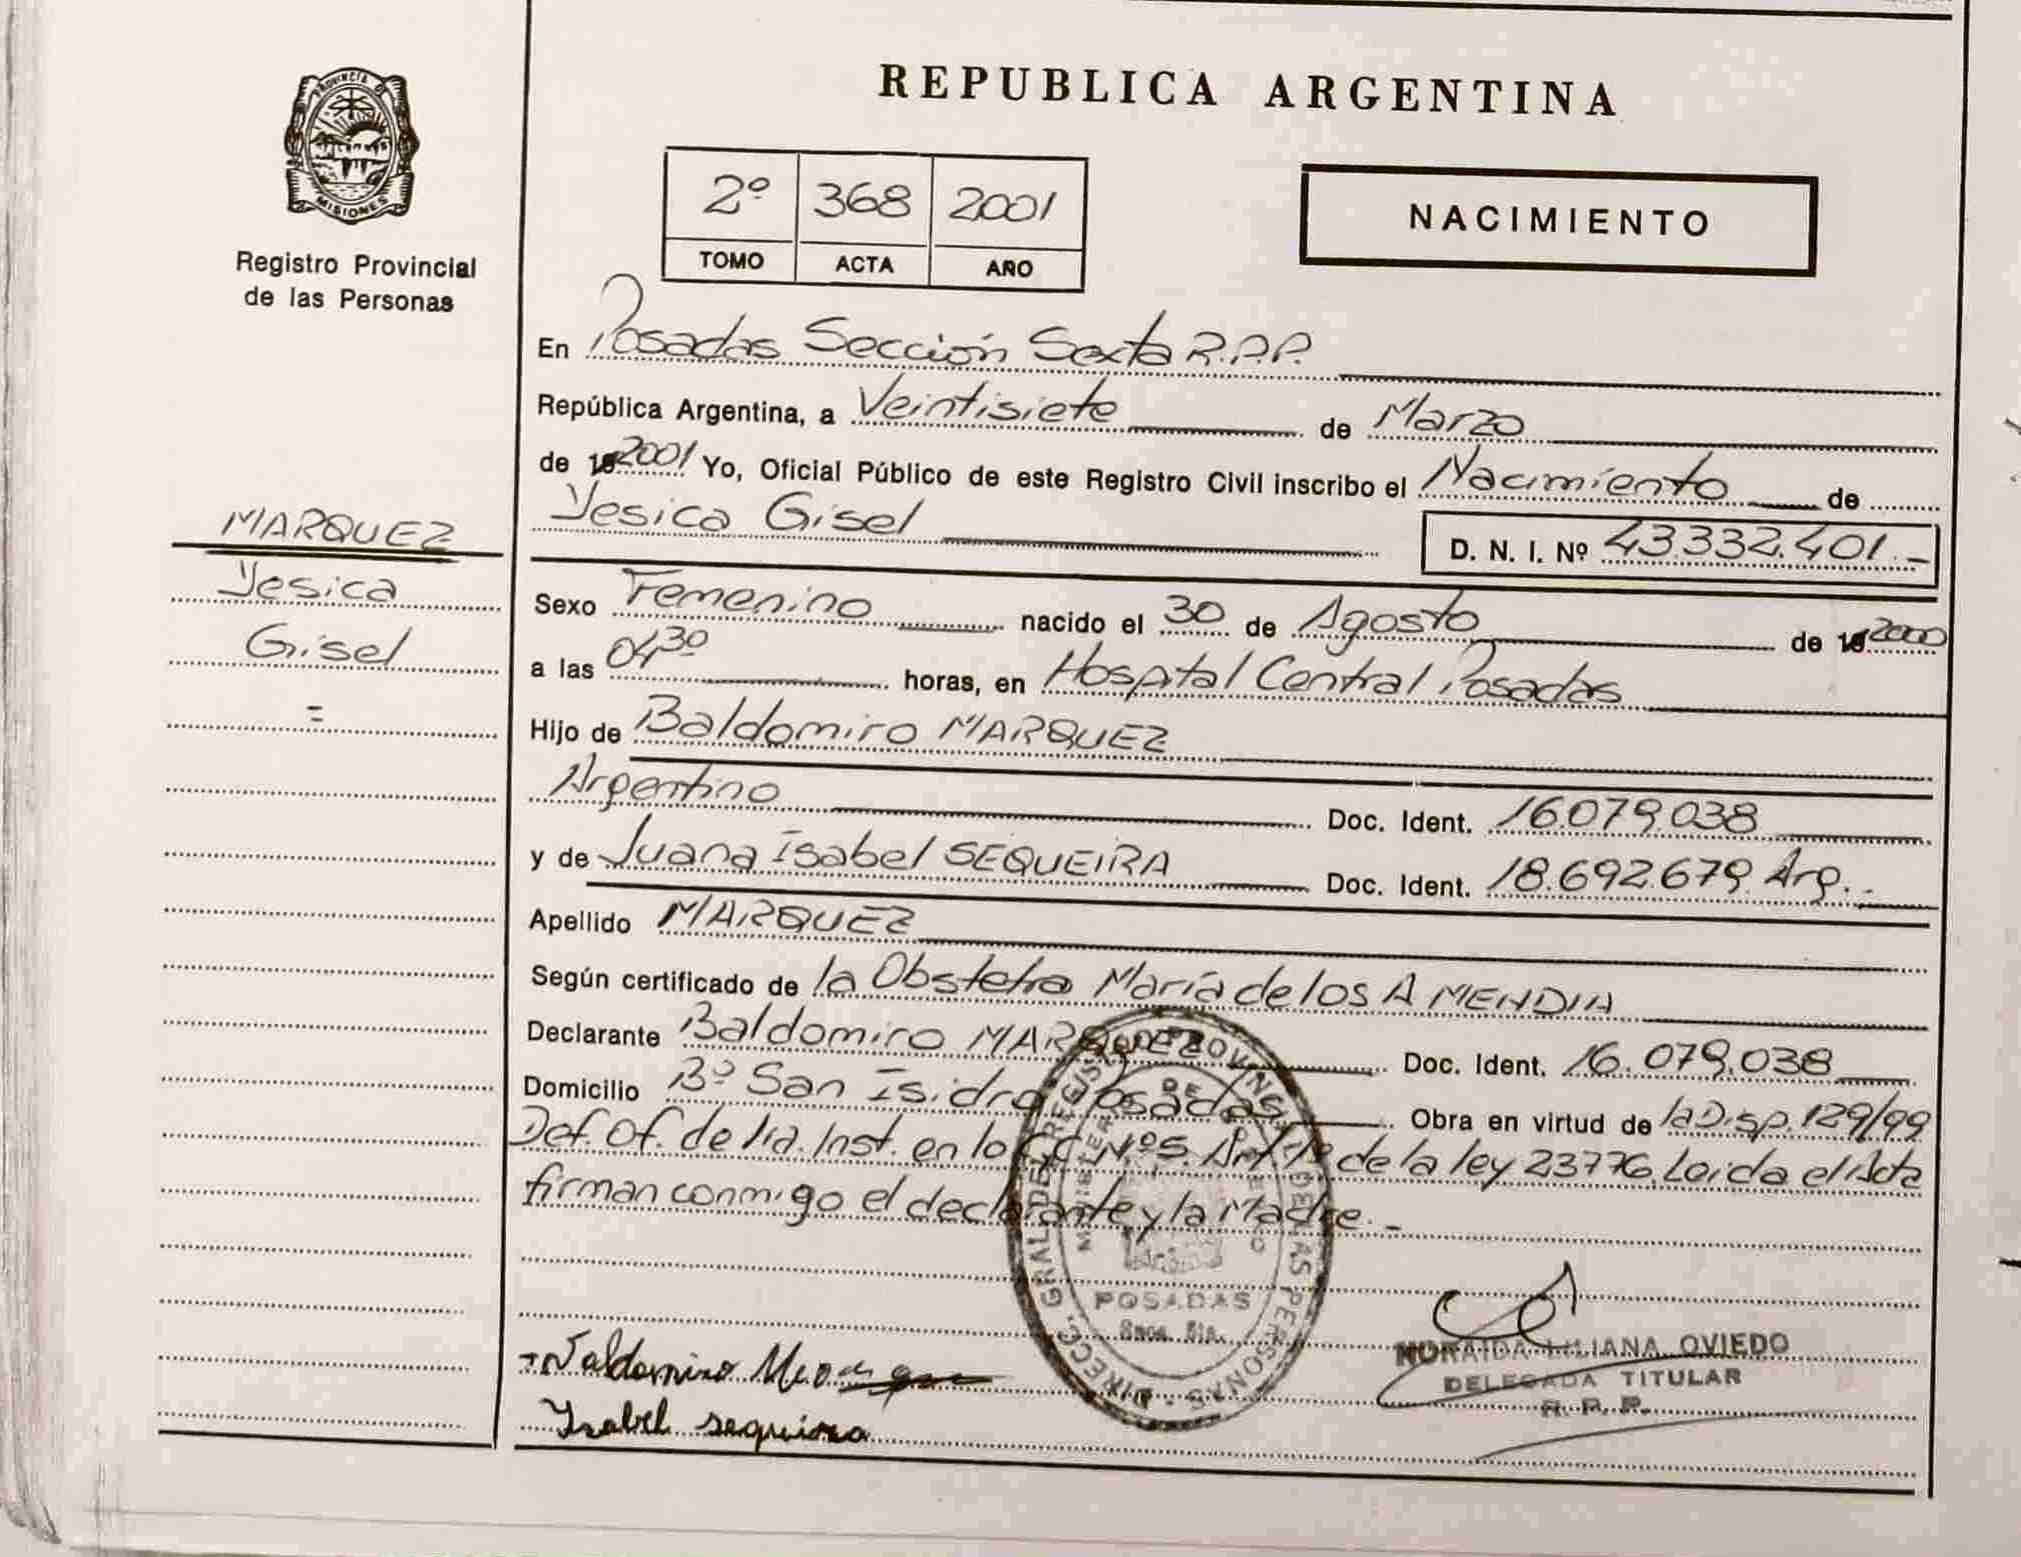 REPUBLICA ARGENTINA
PROVINCIA DE
MISIONES
Registro Provincial
de las Personas
2º 368 2001
TOMO ACTA AÑO
NACIMIENTO
En Posadas Sección Sexta R.P.P.
República Argentina, a Veintisiete de Marzo
de 2001 Yo, Oficial Público de este Registro Civil inscribo el Nacimiento de
Yesica Gisel D. N. I. Nº 43.332.401.-
MARQUEZ
Yesica
Gisel
=
Sexo Femenino nacido el 30 de Agosto de 2000
a las 04³⁰ horas, en Hospital Central Posadas
Hijo de Baldomiro MARQUEZ
Argentino Doc. Ident. 16.079.038
y de Juana Isabel SEQUEIRA Doc. Ident. 18.692.679 Arg.
Apellido MARQUEZ
Según certificado de la Obstetra María de los A MENDIA
Declarante Baldomiro MARQUEZ Doc. Ident. 16.079.038
Domicilio Bº San Isidro Posadas Obra en virtud de la Disp. 129/99
Def. Of. de 1ra. Inst. en lo C.C. Nº 5. Art. de la ley 23776. Leida el Acta
firman conmigo el declarante y la Madre.-
DIRECC. GRAL. DEL REGISTRO PROVINCIAL DE LAS PERSONAS
MINISTERIO DE GOBIERNO
POSADAS
Secc. 6ta.
Valdomiro
Isabel sequiera
NORAIDA LILIANA OVIEDO
DELEGADA TITULAR
R. P. P.